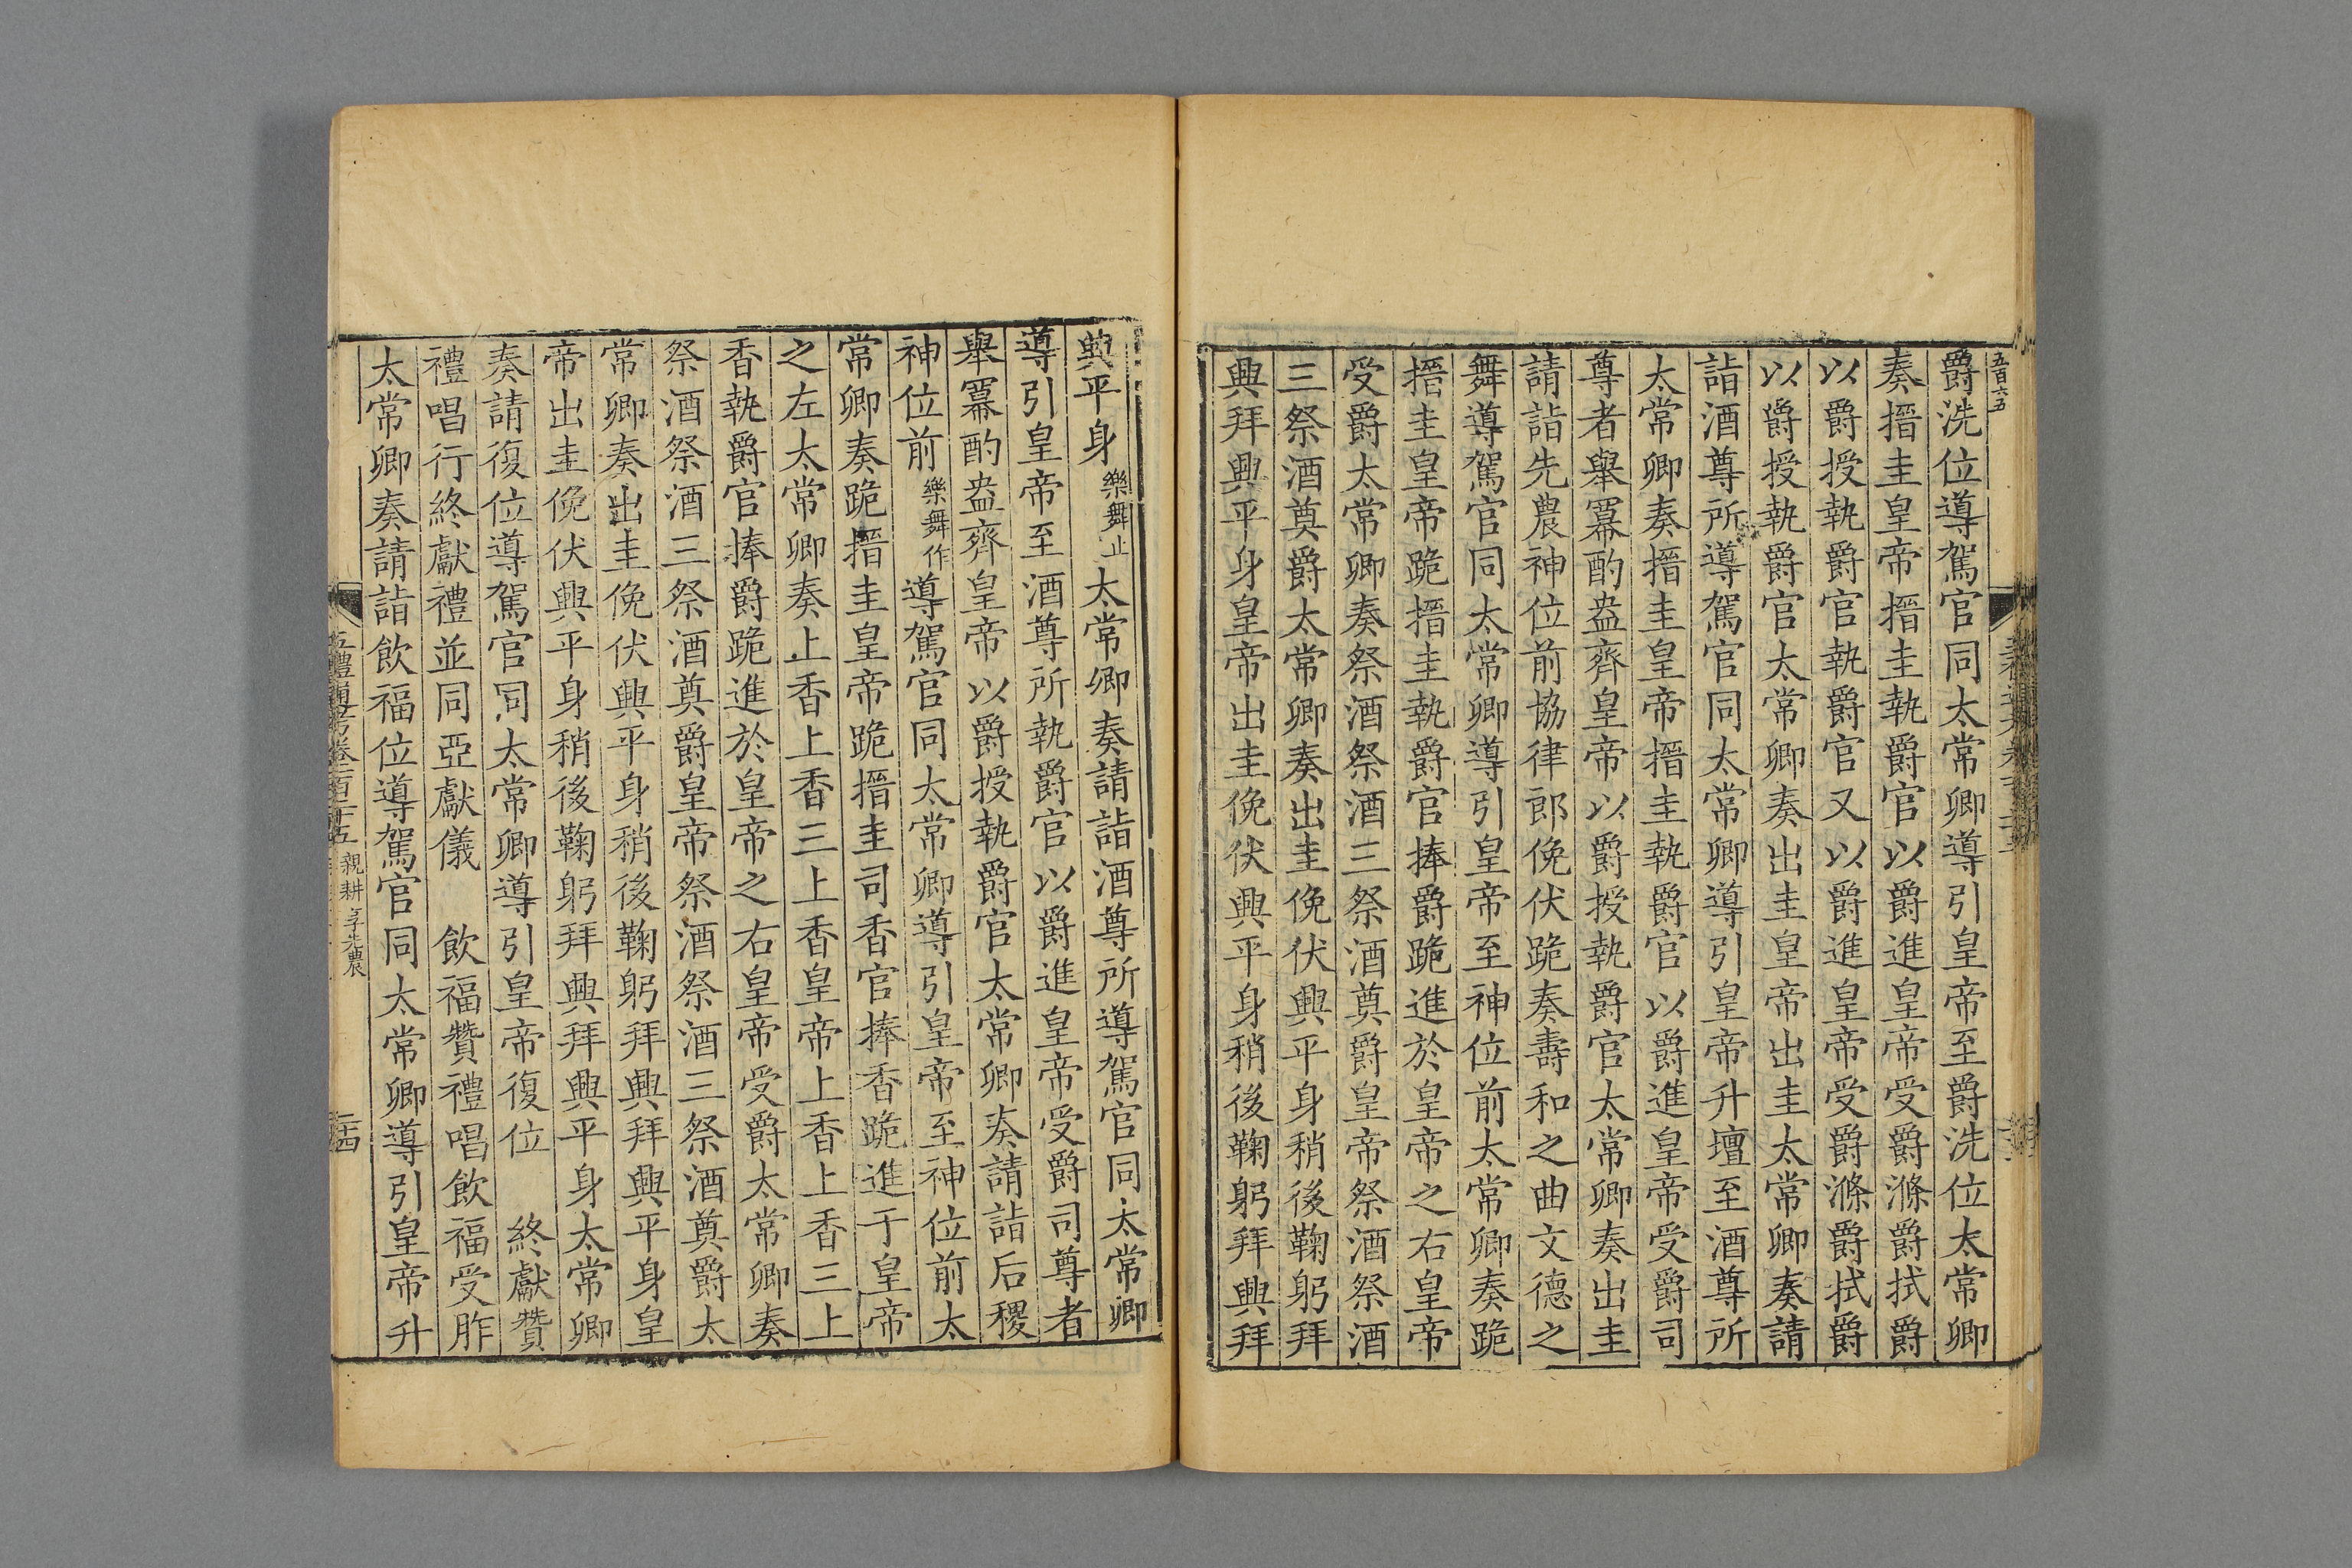 五百六五
爵洗位導駕官同太常卿導引皇帝至爵洗位太常卿
奏搢圭皇帝搢圭執爵官以爵進皇帝受爵滌爵拭爵
以爵授執爵官執爵官又以爵進皇帝受爵滌爵拭爵
以爵授執爵官太常卿奏出圭皇帝出圭太常卿奏請
詣酒尊所導駕官同太常卿導引皇帝升壇至酒尊所
太常卿奏搢圭皇帝搢圭執爵官以爵進皇帝受爵司
尊者舉冪酌盎齊皇帝以爵授執爵官太常卿奏出圭
請詣先農神位前協律郎俛伏跪奏壽和之曲文德之
舞導駕官同太常卿導引皇帝至神位前太常卿奏跪
搢圭皇帝跪搢圭執爵官捧爵跪進於皇帝之右皇帝
受爵太常卿奏祭酒祭酒三祭酒奠爵皇帝祭酒祭酒
三祭酒奠爵太常卿奏出圭俛伏興平身稍後鞠躬拜
興拜興平身皇帝出圭俛伏興平身稍後鞠躬拜興拜
興平身樂舞止太常卿奏請詣酒尊所導駕官同太常卿
導引皇帝至酒尊所執爵官以爵進皇帝受爵司尊者
舉冪酌盎齊皇帝以爵授執爵官太常卿奏請詣后稷
神位前樂舞作導駕官同太常卿導引皇帝至神位前太
常卿奏跪搢圭皇帝跪搢圭司香官捧香跪進于皇帝
之左太常卿奏上香上香三上香皇帝上香上香三上
香執爵官捧爵跪進於皇帝之右皇帝受爵太常卿奏
祭酒祭酒三祭酒奠爵皇帝祭酒祭酒三祭酒奠爵太
常卿奏出圭俛伏興平身稍後鞠躬拜興拜興平身皇
帝出圭俛伏興平身稍後鞠躬拜興拜興平身太常卿
奏請復位導駕官同太常卿導引皇帝復位　終獻贊
禮唱行終獻禮並同亞獻儀　飲福贊禮唱飲福受胙
太常卿奏請詣飲福位導駕官同太常卿導引皇帝升
五禮通考卷一百二十五 親耕享先農